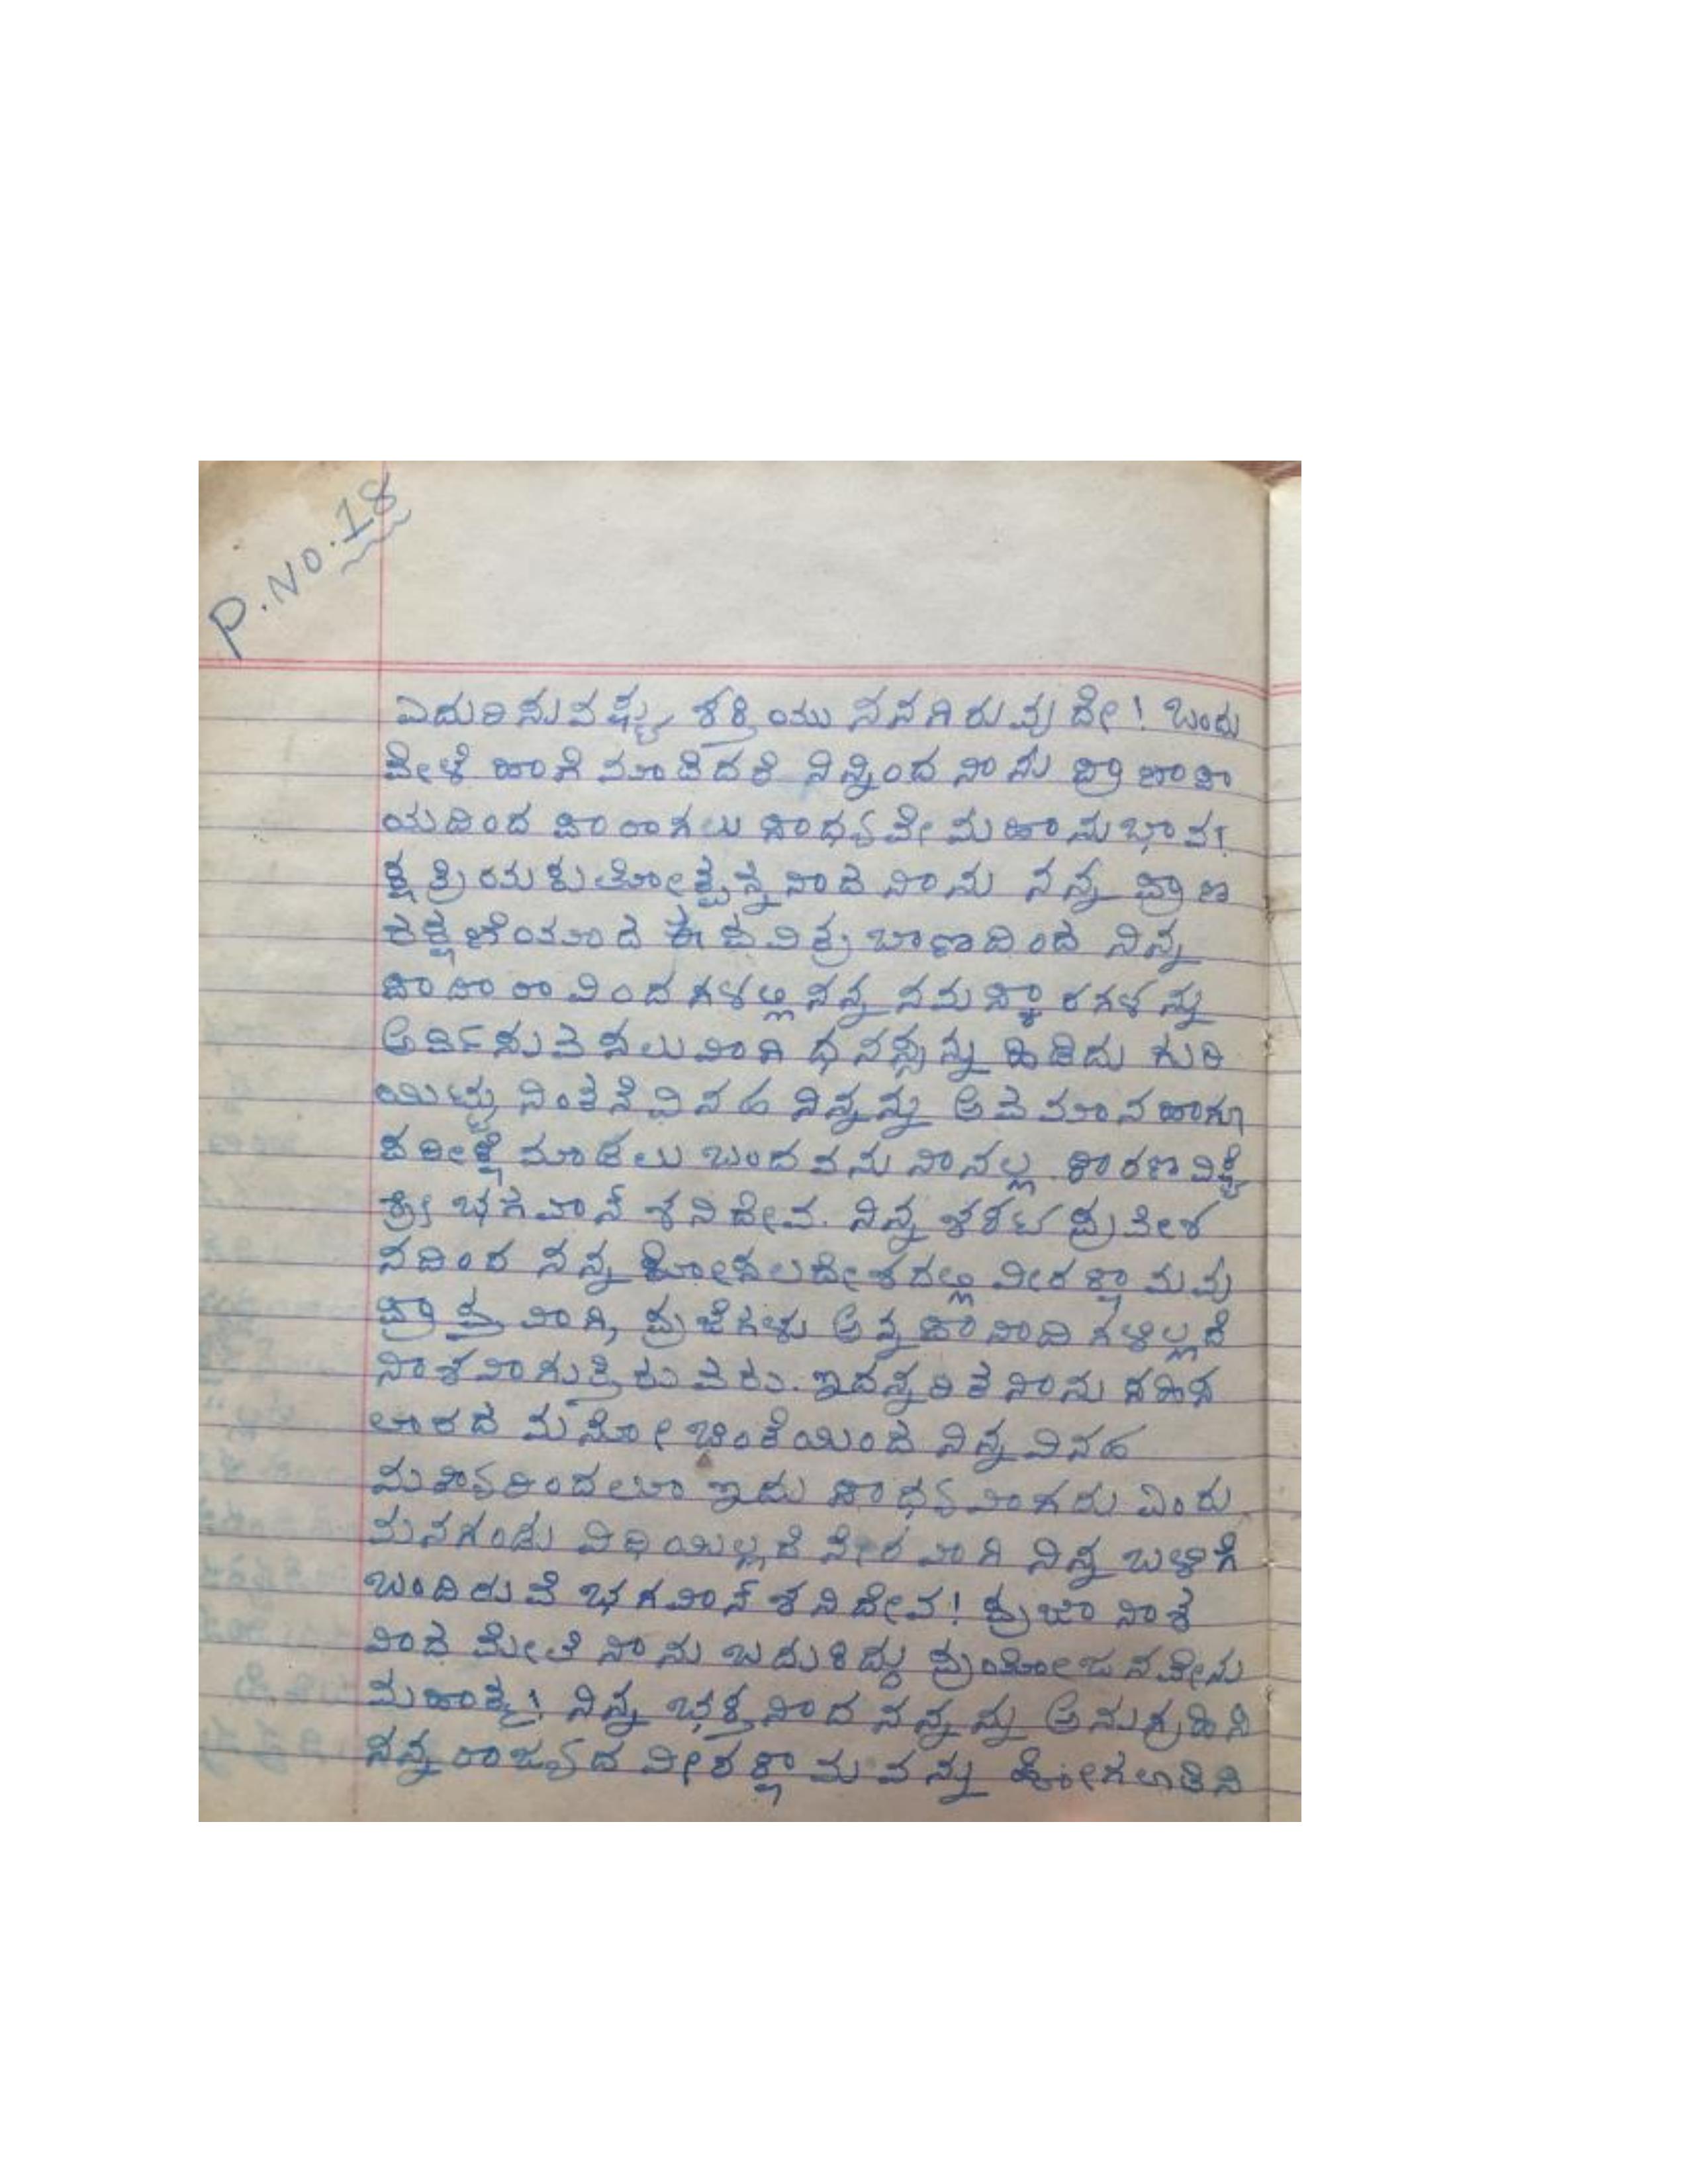 P.No.18
ಎದುರಿಸುವಷ್ಟು ಶಕ್ತಿಯು ನನಗಿರುವುದೇ! ಒಂದು
ವೇಳೆ ಹಾಗೆ ಮಾಡಿದರೆ ನಿನ್ನಿಂದ ನಾನು ಪ್ರಾಣಾಪಾ
ಯದಿಂದ ಪಾರಾಗಲು ಸಾಧ್ಯವೇ ಮಹಾನುಭಾವ!
ಕ್ಷತ್ರಿಯಕುಲೋತ್ಪನ್ನನಾದ ನಾನು ನನ್ನ ಪ್ರಾಣ
ರಕ್ಷಣೆಯಾದ ಈ ಪವಿತ್ರ ಬಾಣದಿಂದ ನಿನ್ನ
ಪಾದಾರಾವಿಂದಗಳಲ್ಲಿ ನನ್ನ ನಮಸ್ಕಾರಗಳನ್ನು
ಅರ್ಪಿಸುವಸಲುವಾಗಿ ಧನಸ್ಸನ್ನು ಹಿಡಿದು ಗುರಿ
ಯಿಟ್ಟು ನಿಂತೆನೆವಿನಹ ನಿನ್ನನ್ನು ಅವಮಾನಹಾಗೂ
ಪರೀಕ್ಷೆ ಮಾಡಲು ಬಂದವನು ನಾನಲ್ಲ. ಕಾರಣವಿಷ್ಟೆ
ಶ್ರೀ ಭಗವಾನ್ ಶನಿದೇವ. ನಿನ್ನ ಶಕಟ ಪ್ರವೇಶ
ನದಿಂದ ನನ್ನ ಕೋಸಲದೇಶದಲ್ಲಿ ವೀರಕ್ಷಾಮವು
ಪ್ರಾಪ್ತವಾಗಿ, ಪ್ರಜೆಗಳು ಅನ್ನಪಾನಾದಿಗಳಿಲ್ಲದೆ
ನಾಶವಾಗುತ್ತಿರುವರು. ಇದನ್ನರಿತ ನಾನು ಸಹಿಸ
ಲಾರದ ಮನೋಚಿಂತೆಯಿಂದ ನಿನ್ನ ವಿನಹ
ಮತ್ಯಾರಿಂದಲೂ ಇದು ಸಾಧ್ಯವಾಗದು ಎಂದು
ಮನಗಂಡು ವಿಧಿಯಿಲ್ಲದೆ ನೇರವಾಗಿ ನಿನ್ನ ಬಳಿಗೆ
ಬಂದಿರುವೆ ಭಗವಾನ್ ಶನಿದೇವ! ಪ್ರಜಾ ನಾಶ
ವಾದ ಮೇಲೆ ನಾನು ಬದುಕಿದ್ದು ಪ್ರಯೋಜನವೇನು
ಮಹಾತ್ಮ! ನಿನ್ನ ಭಕ್ತನಾದ ನನ್ನನ್ನು ಅನುಗ್ರಹಿಸಿ
ನನ್ನ ರಾಜ್ಯದ ವೀರಕ್ಷಾಮವನ್ನು ಹೋಗಲಾಡಿಸಿ